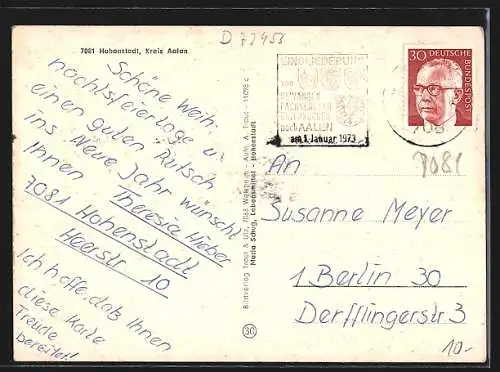 D 72453
7081 Hohenstadt, Kreis Aalen
Schöne Weih-
nachtsfeiertage u.
einen guten Rutsch
ins Neue Jahr wünscht
Ihnen Theresia Hieber
7081 Hohenstadt
Heerstr 10
Ich hoffe, daß Ihnen
diese Karte
Freude
bereitet!
EINGLIEDERUNG
von
nach AALEN
am 1. Januar 1973
30 DEUTSCHE
BUNDESPOST
708
7081
An
Susanne Meyer
1 Berlin 30
Derfflingerstr 3
10.-
Bildverlag
Lebensmittel - Hohenstadt
30